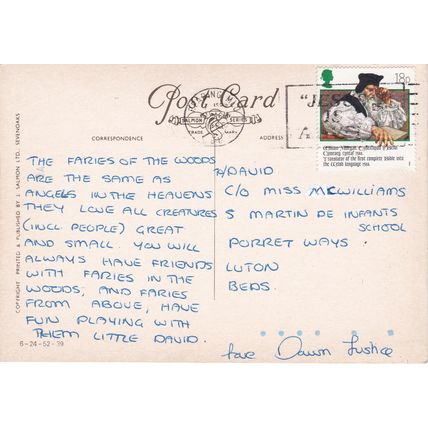 Post Card
SALMON SERIES
TRADE MARK
CORRESPONDENCE
ADDRESS
18p
"JES
William Morgan, Cyfieithydd y Beibl
Cymraeg cyntaf 1588.
Translator of the first complete Bible into
the Welsh language 1588.
THE FARIES OF THE WOODS
ARE THE SAME AS
ANGELS IN THE HEAVENS
THEY LOVE ALL CREATURES
(INCL. PEOPLE) GREAT
AND SMALL. YOU WILL
ALWAYS HAVE FRIENDS
WITH FARIES IN THE
WOODS, AND FARIES
FROM ABOVE, HAVE
FUN PLAYING WITH
THEM LITTLE DAVID.
DAVID
C/O MISS MCWILLIAMS
S MARTIN DE INFANTS
SCHOOL
PORRET WAYS
LUTON
BEDS.
love Dawn Justice
COPYRIGHT PRINTED & PUBLISHED BY J. SALMON LTD. SEVENOAKS
6-24-52-39